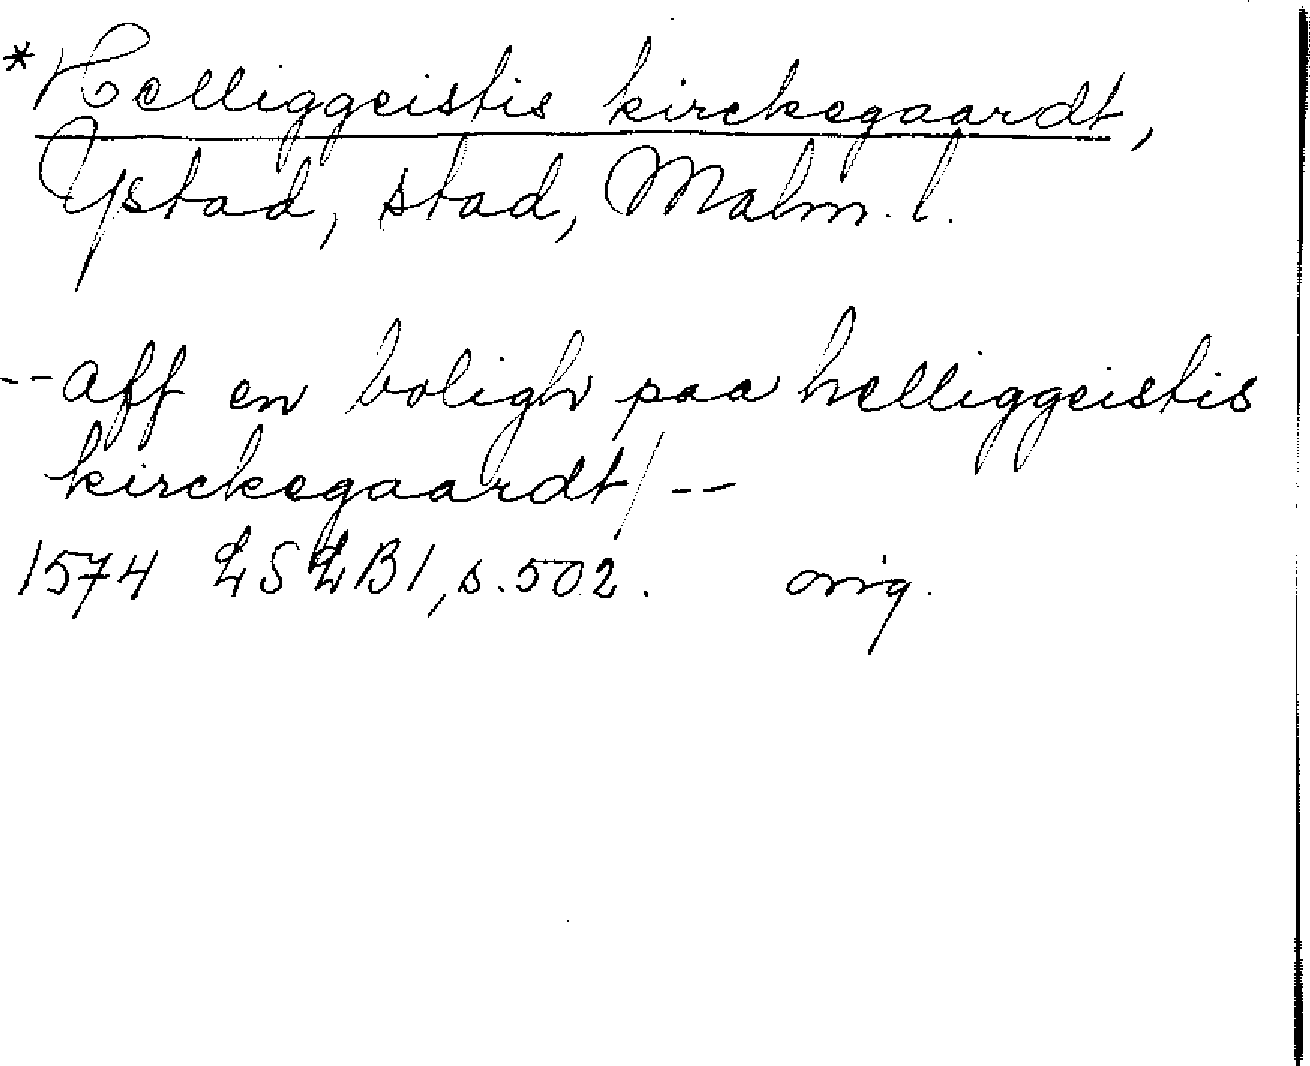 *Helliggeistis kirckegaardt,
Ystad, stad, Malm. l.
-- aff en boligh paa helliggeistis
kirckegaardt/ --
1574 LSLB1, s. 502. orig.